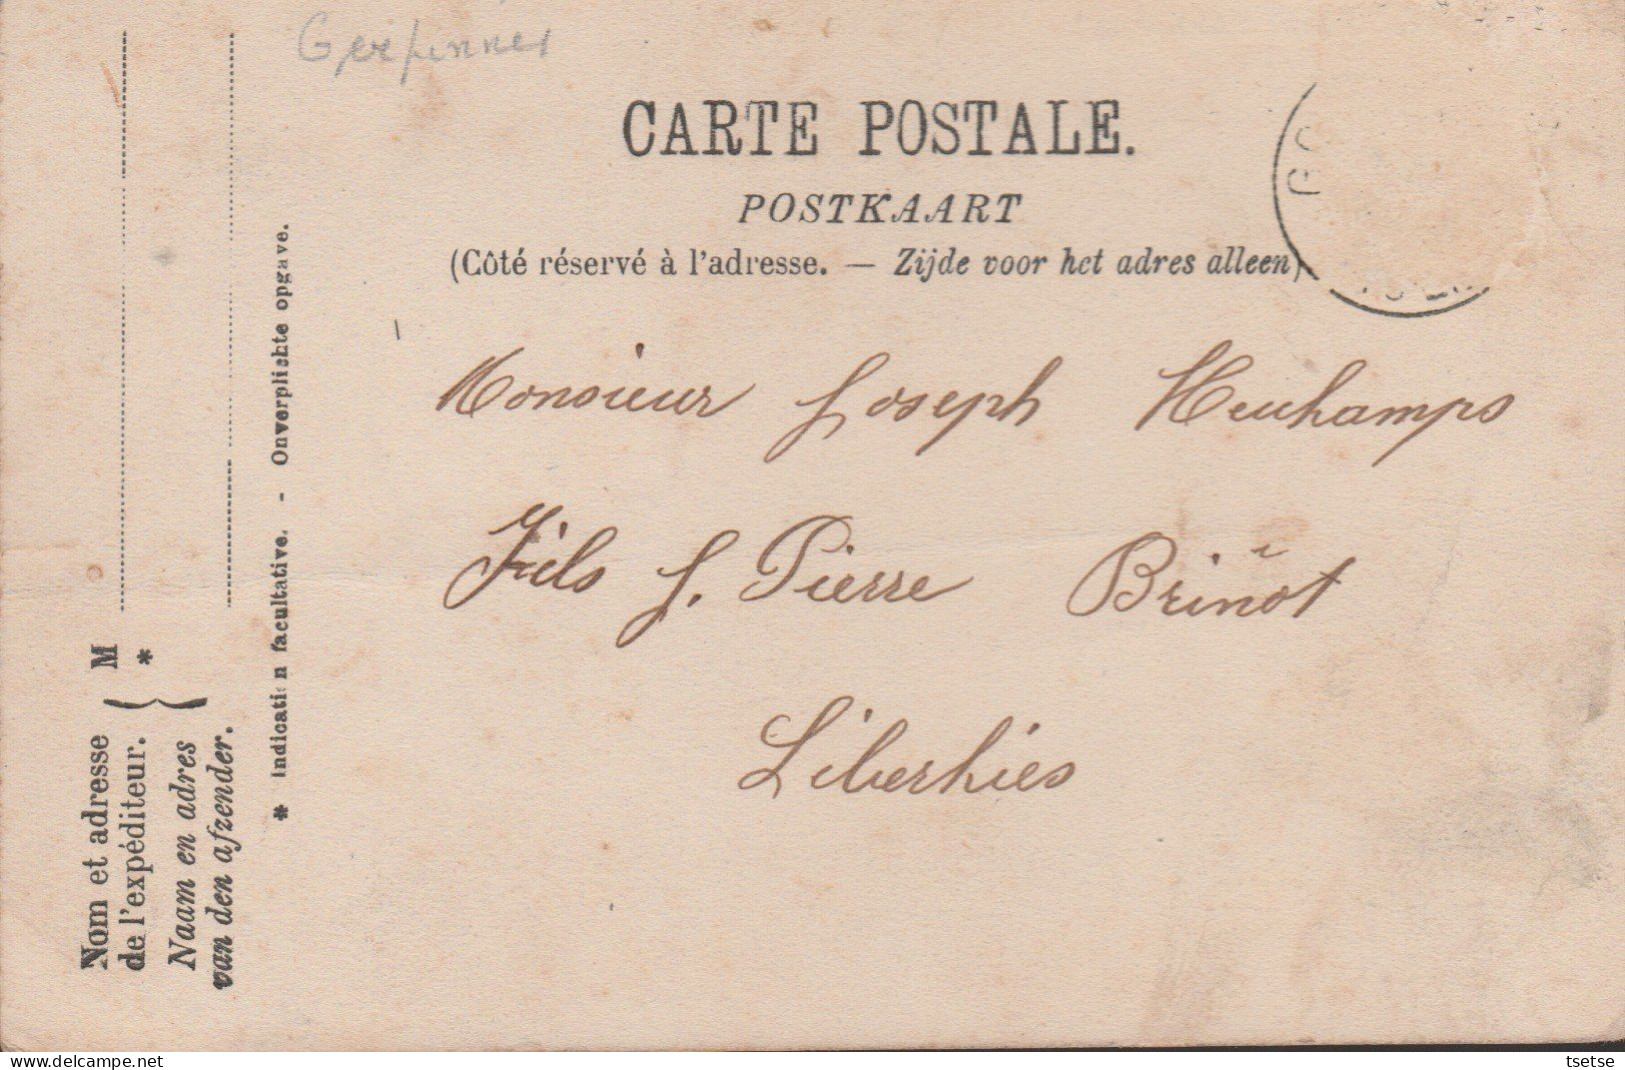 Gerpinnes
CARTE POSTALE.
POSTKAART
(Côté réservé à l'adresse. — Zijde voor het adres alleen)
Monsieur Joseph Heuchamps
Fils J. Pierre Brinot
Liberchies
Nom et adresse
de l'expéditeur.
Naam en adres
van den afzender.
M
*
* Indication facultative. - Onverplichte opgave.
tsetse
delcampe.net